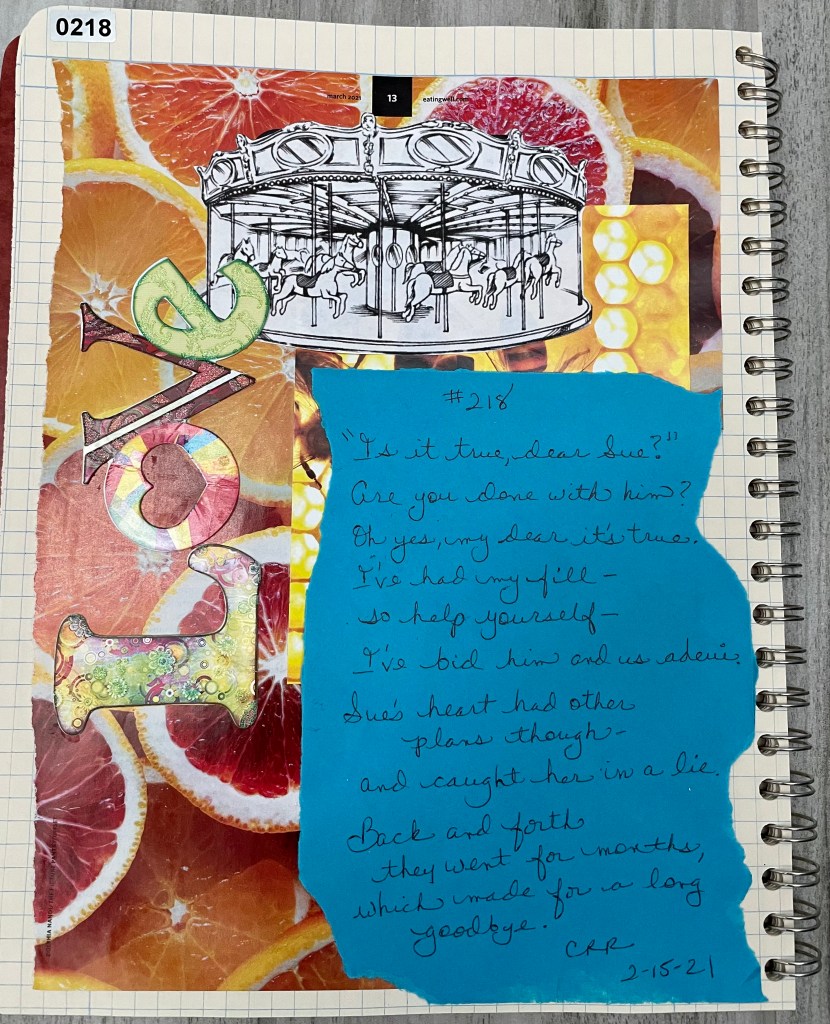 0218
march 2021
13
eatingwell.com
LOVE
#218
"Is it true, dear Sue?"
Are you done with him?
Oh yes, my dear it's true.
I've had my fill –
so help yourself –
I've bid him and us adeiu.
Sue's heart had other
plans though –
and caught her in a lie.
Back and forth
they went for months,
which made for a long
goodbye.
CRR
2-15-21